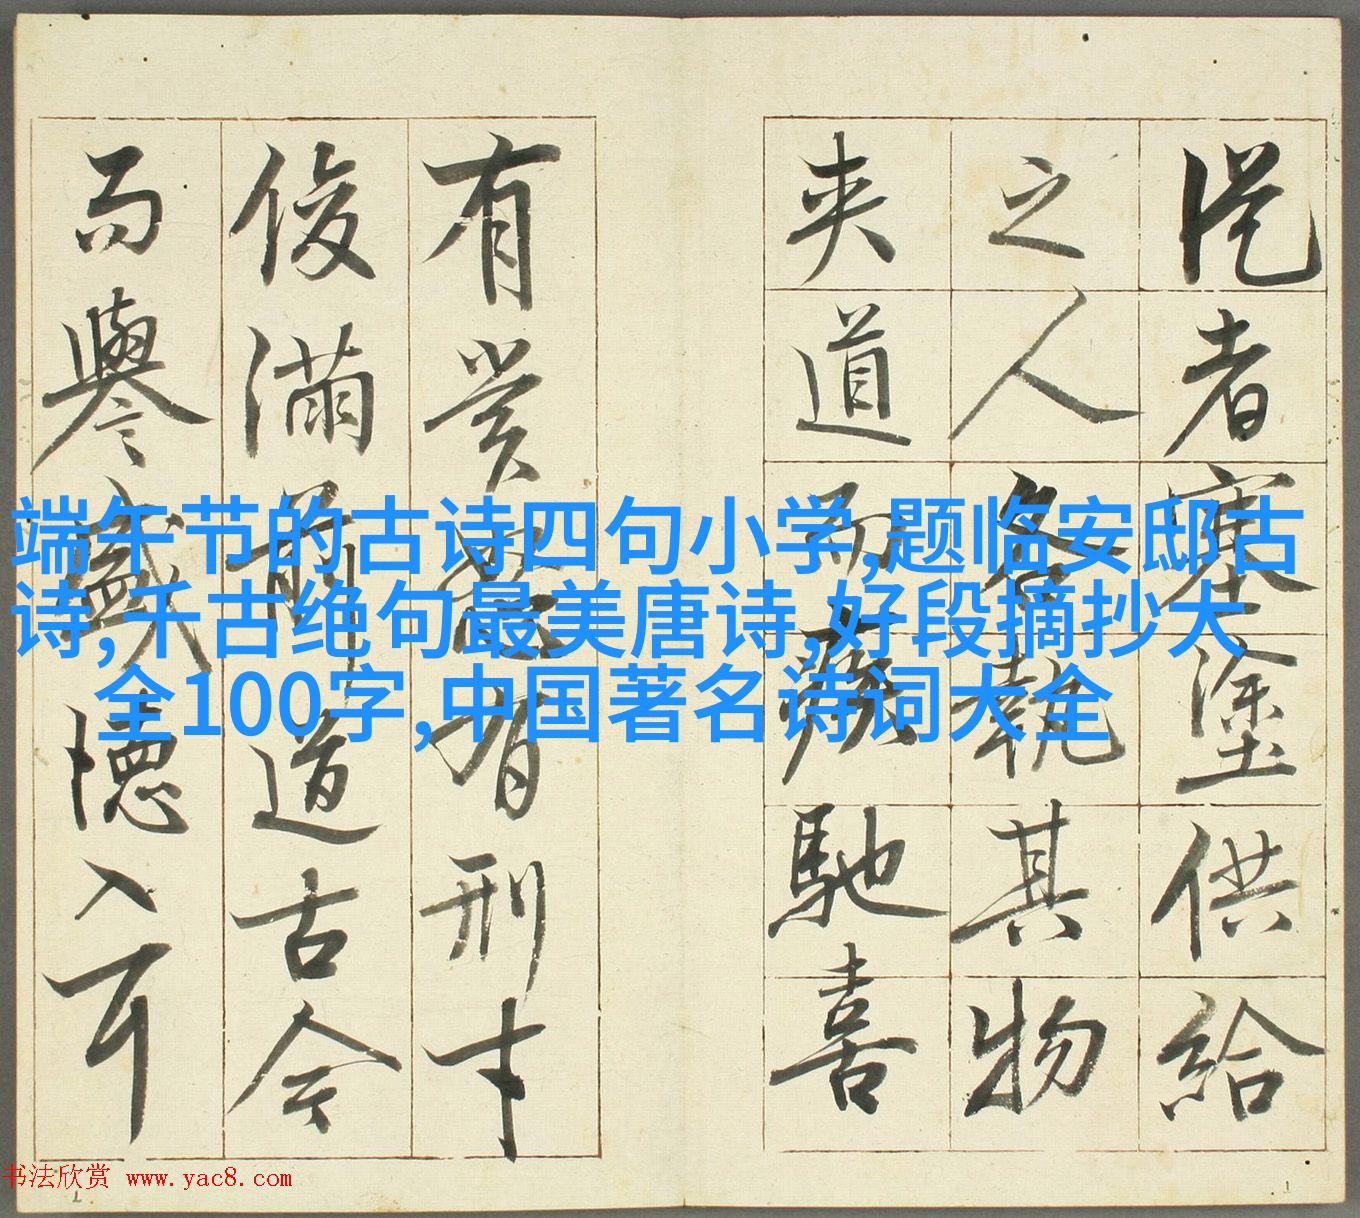 從者塞塗供給
之人各執其物
夾道而疾馳喜
有賞怒有刑才
俊滿前道古今
而譽盛德入耳
端午节的古诗四句小学,题临安邸古
诗,千古绝句最美唐诗,好段摘抄大
全100字,中国著名诗词大全
书法欣赏 www.yac8.com